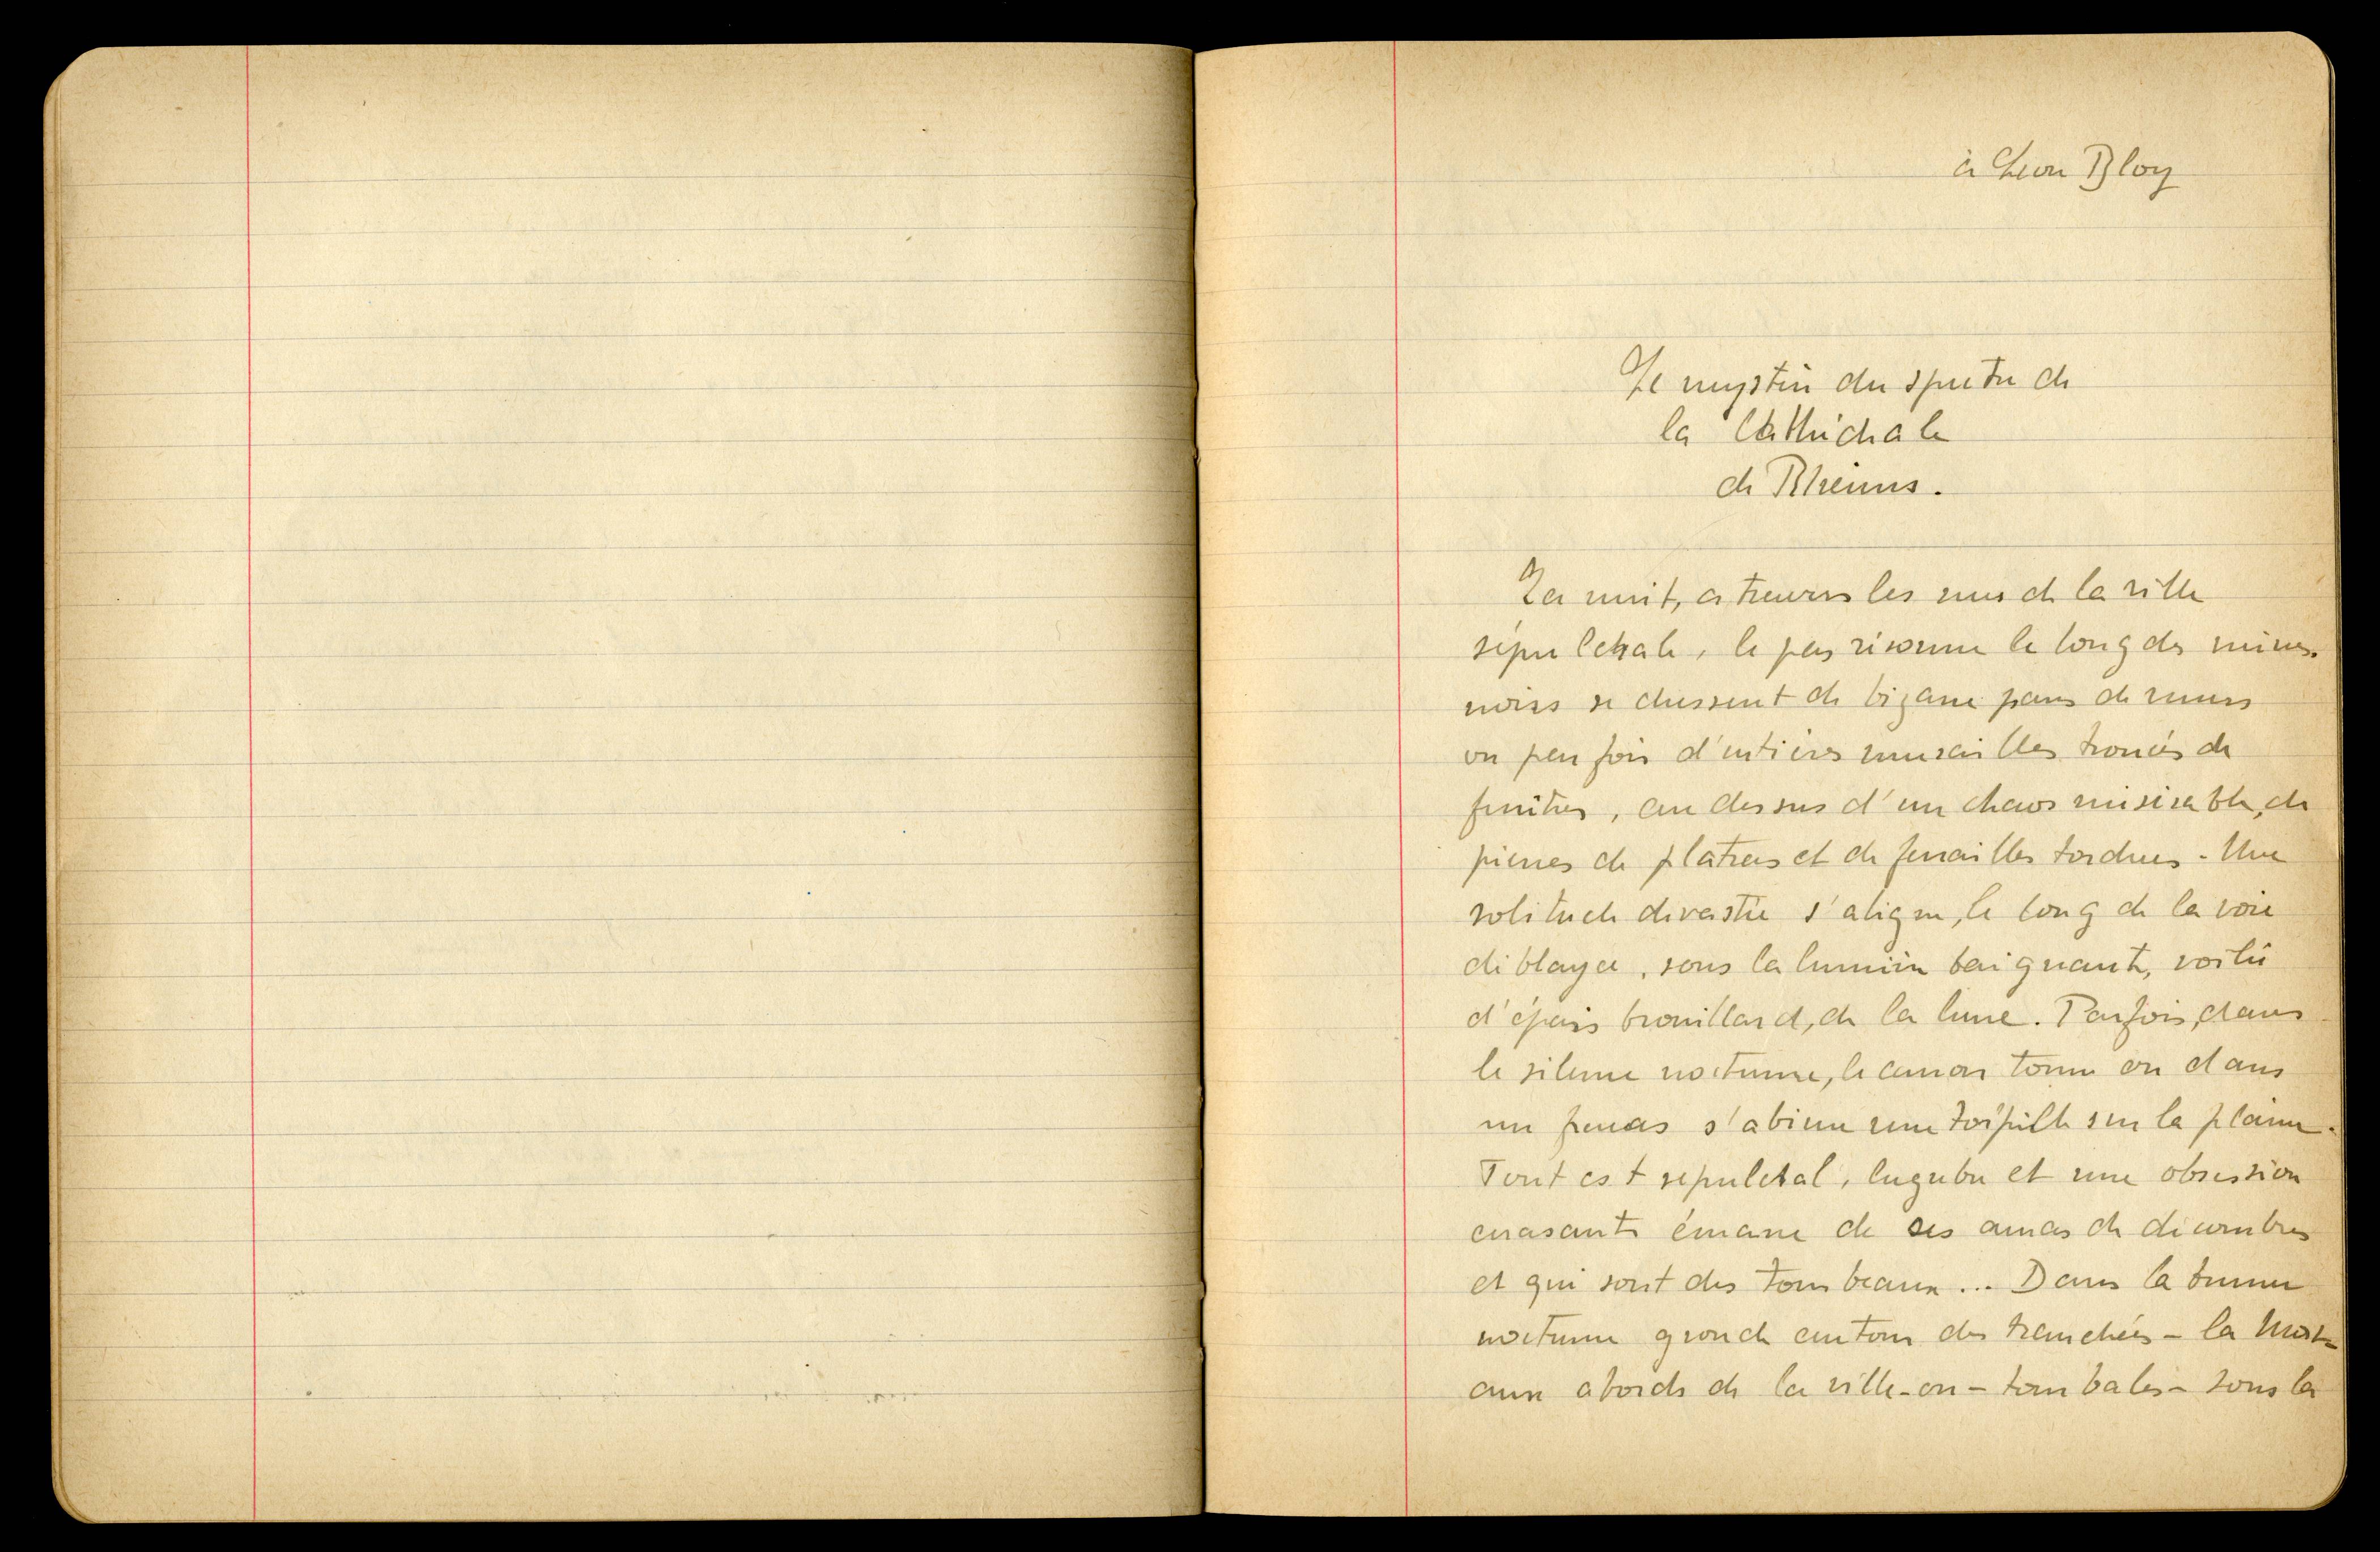 à Léon Bloy
Le mystère du spectre de
la Cathédrale
de Rheims.
La nuit, à travers les rues de la ville
sépulchrale, le pas résonne le long des ruines
noires se dressent de bizarre pans de murs
ou parfois d'entières murailles trouées de
fenêtres, au dessus d'un chaos misérable, de
pierres de platras et de ferrailles tordues. Une
solitude dévastée s'aligne, le long de la voie
déblayée, sous la lumière baignante, voilée
d'épais brouillard, de la lune. Parfois, dans
le silence nocturne, le canon tonne ou dans
un fracas s'abime une torpille sur la plaine.
Tout est sepulchral, lugubre et une obsession
écrasante émane de ces amas de décombres
et qui sont des tombeaux... Dans la brume
nocturne gronde autour des tranchées – la Mort
aux abords de la ville – on – tombales – sous la